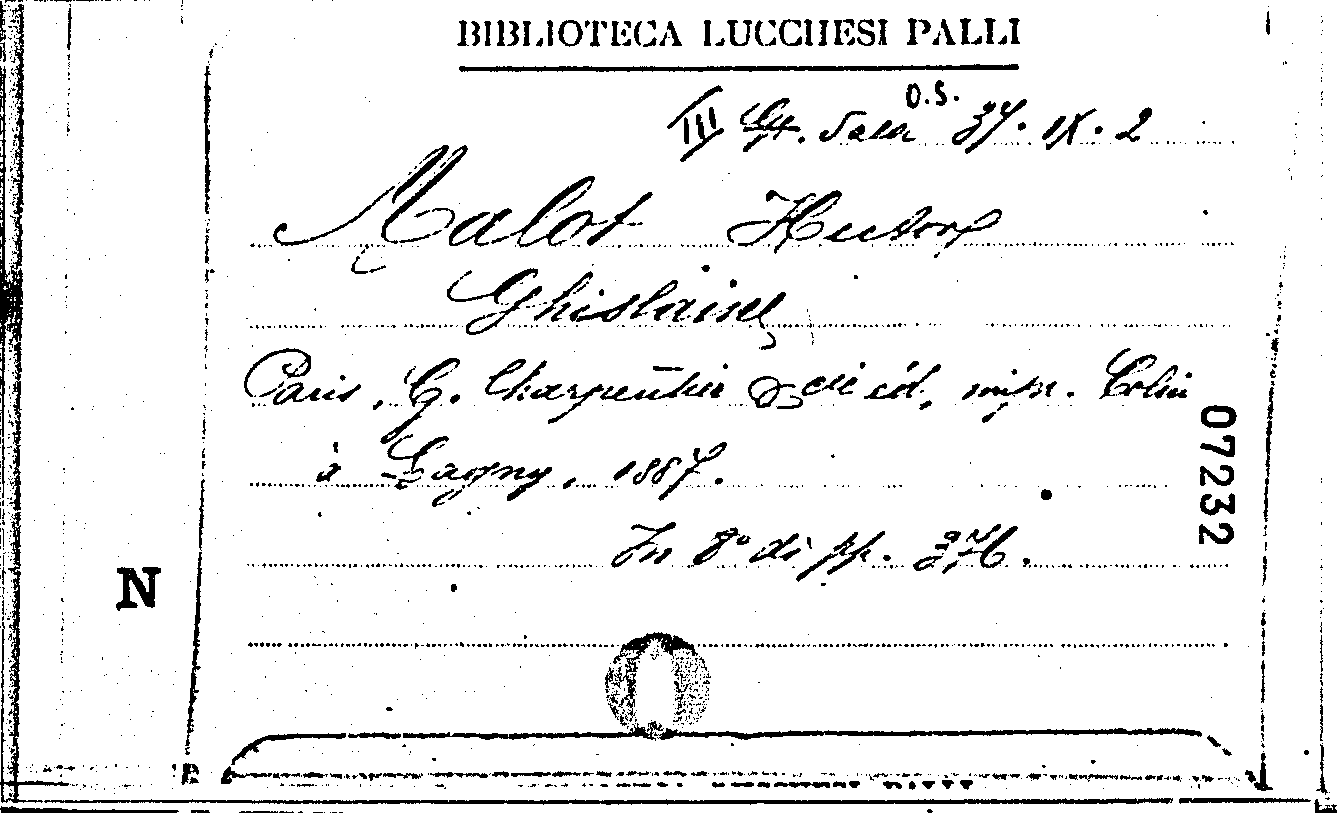 BIBLIOTECA LUCCHESI PALLI
O.S.
III Gr. Sala 37. IX. 2
Malot Hector
Ghislaine
Paris, G. Charpentier & cie éd, impr. Colin
à Lagny, 1887.
In 8° di pp. 376.
07232
N